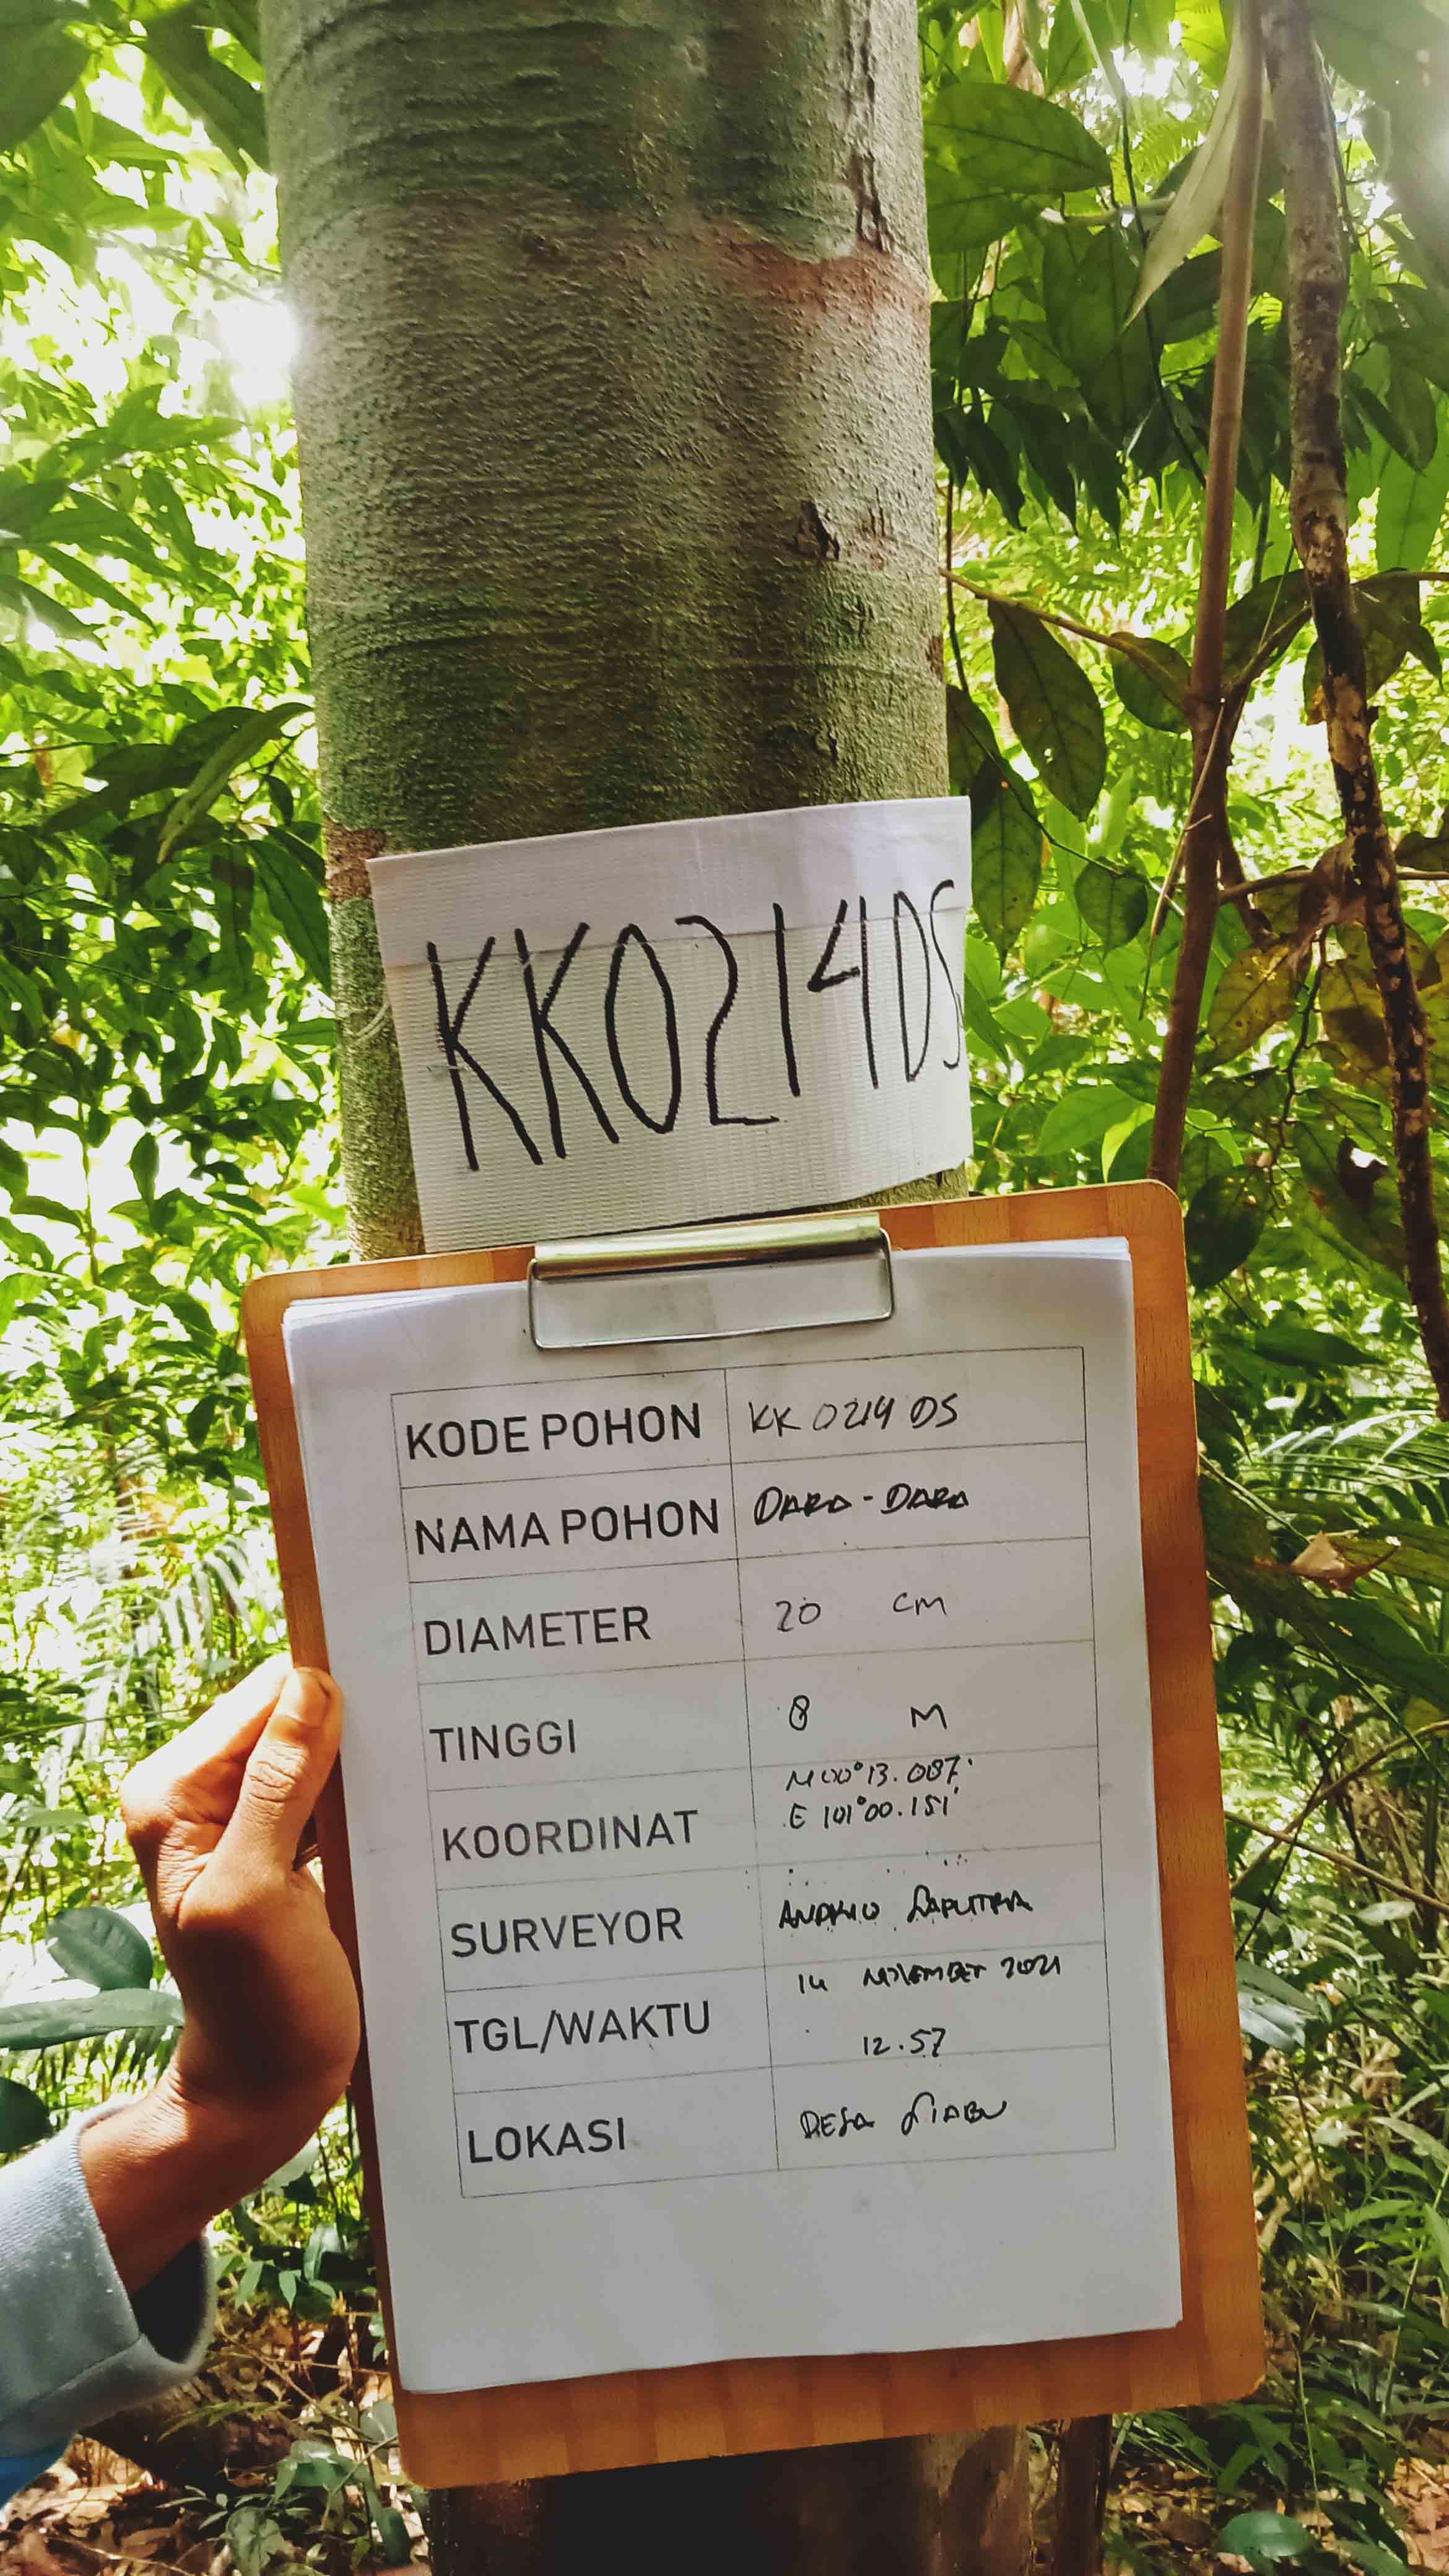 KK0214DS
KODE POHON KK 0214 DS
NAMA POHON DARA-DARA
DIAMETER 20 CM
TINGGI 8 M
KOORDINAT N 00°13.087'
E 101°00.151'
SURVEYOR SAPUTRA
TGL/WAKTU 14 NOVEMBER 2021
12.57
LOKASI DESA SIABU